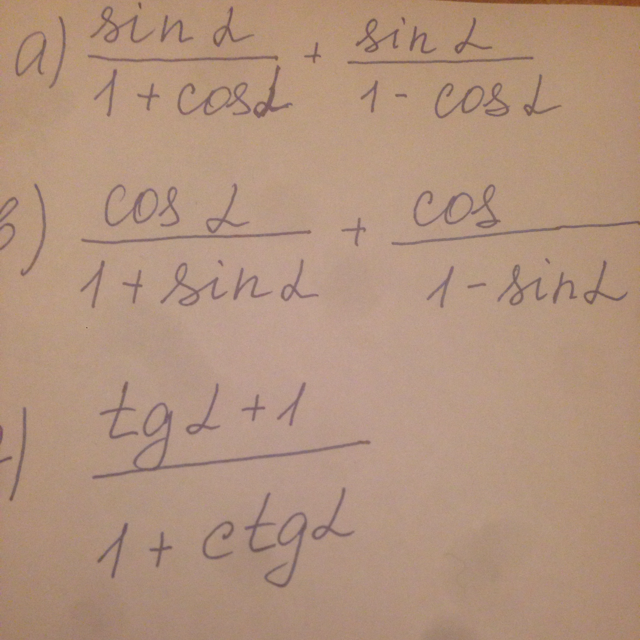 а) sin α / 1 + cos α + sin α / 1 - cos α
в) cos α / 1 + sin α + cos / 1 - sin α
tg α + 1 / 1 + ctg α